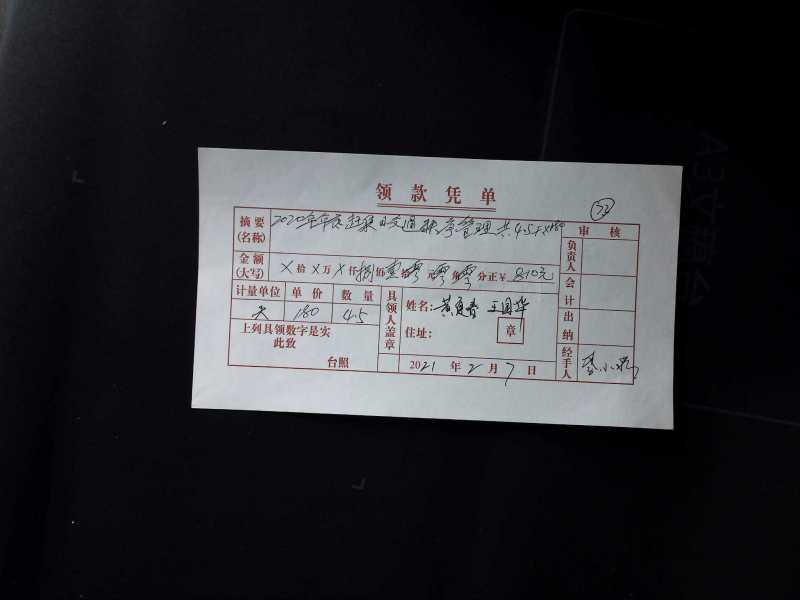 领款凭单
73
摘要(名称) 2020年年度赶集日交通秩序管理共4.5天×180
审核
金额(大写) X拾X万X仟捌佰壹拾零元零角零分正¥ 810元
负责人
会计
计量单位 单价 数量
天 180 4.5
出纳
上列具领数字是实
此致
台照
具领人盖章
姓名: 王国华
住址: 章
2021年2月7日
经手人